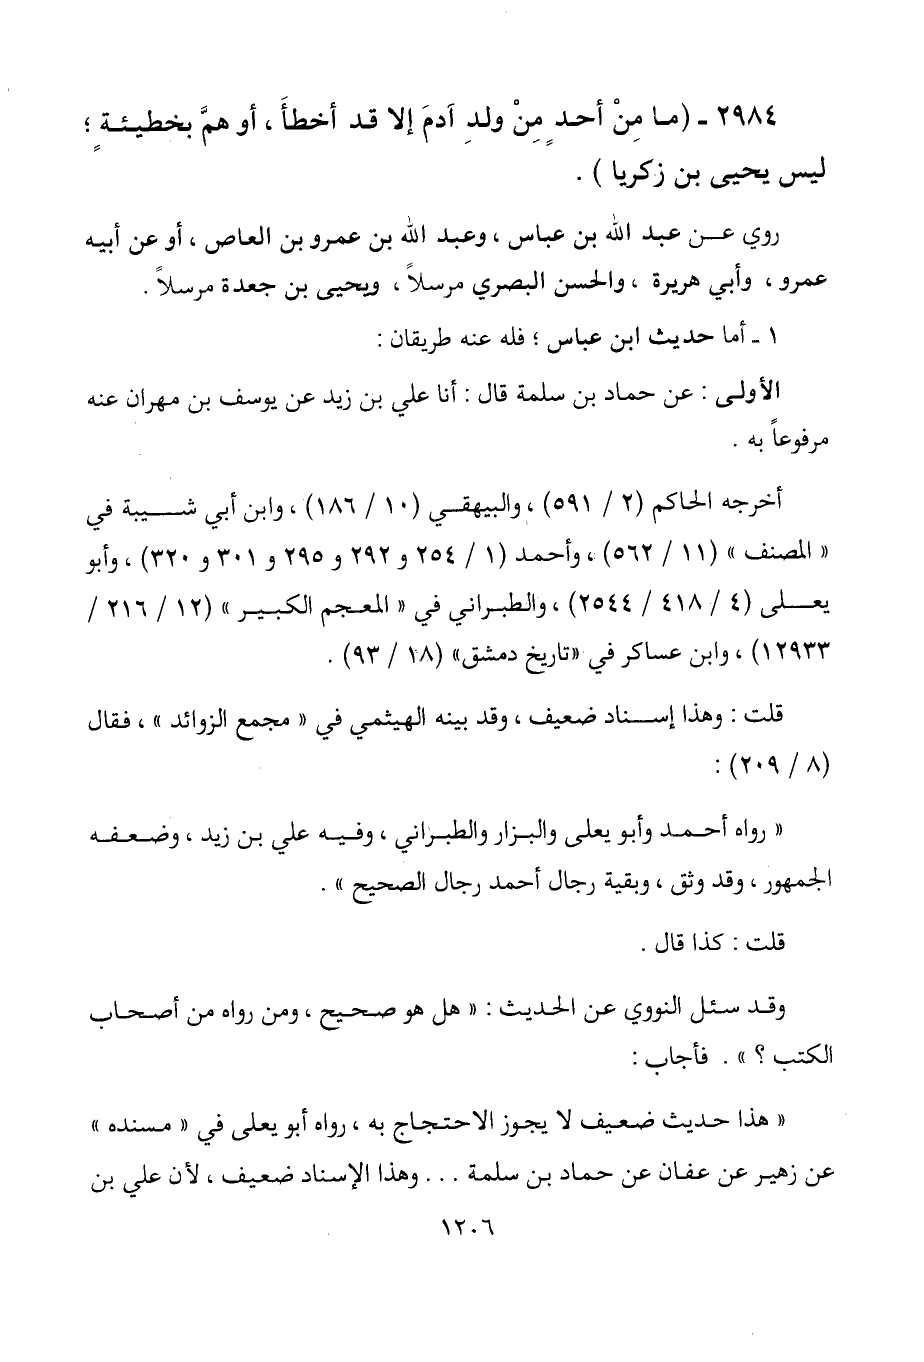 ٢٩٨٤ ـ (ما مِنْ أحدٍ مِنْ ولدِ آدمَ إلا قد أخطأَ ، أو همَّ بخطيئةٍ ؛
ليس يحيى بن زكريا ) .
روي عن عبد الله بن عباس ، وعبد الله بن عمرو بن العاص ، أو عن أبيه
عمرو ، وأبي هريرة ، والحسن البصري مرسلاً ، ويحيى بن جعدة مرسلاً .
١ ـ أما حديث ابن عباس ؛ فله عنه طريقان :
الأولى : عن حماد بن سلمة قال : أنا علي بن زيد عن يوسف بن مهران عنه
مرفوعاً به .
أخرجه الحاكم (٢ / ٥٩١) ، والبيهقي (١٠ / ١٨٦) ، وابن أبي شيبة في
« المصنف » (١١ / ٥٦٢) ، وأحمد (١ / ٢٥٤ و ٢٩٢ و ٢٩٥ و ٣٠١ و ٣٢٠) ، وأبو
يعلى (٤ / ٤١٨ / ٢٥٤٤) ، والطبراني في « المعجم الكبير » (١٢ / ٢١٦ /
١٢٩٣٣) ، وابن عساكر في «تاريخ دمشق» (١٨ / ٩٣) .
قلت : وهذا إسناد ضعيف ، وقد بينه الهيثمي في « مجمع الزوائد » ، فقال
(٨ / ٢٠٩) :
« رواه أحمد وأبو يعلى والبزار والطبراني ، وفيه علي بن زيد ، وضعفه
الجمهور ، وقد وثق ، وبقية رجال أحمد رجال الصحيح » .
قلت : كذا قال .
وقد سئل النووي عن الحديث : « هل هو صحيح ، ومن رواه من أصحاب
الكتب ؟ » . فأجاب :
« هذا حديث ضعيف لا يجوز الاحتجاج به ، رواه أبو يعلى في « مسنده »
عن زهير عن عفان عن حماد بن سلمة . . . وهذا الإسناد ضعيف ، لأن علي بن
١٢٠٦